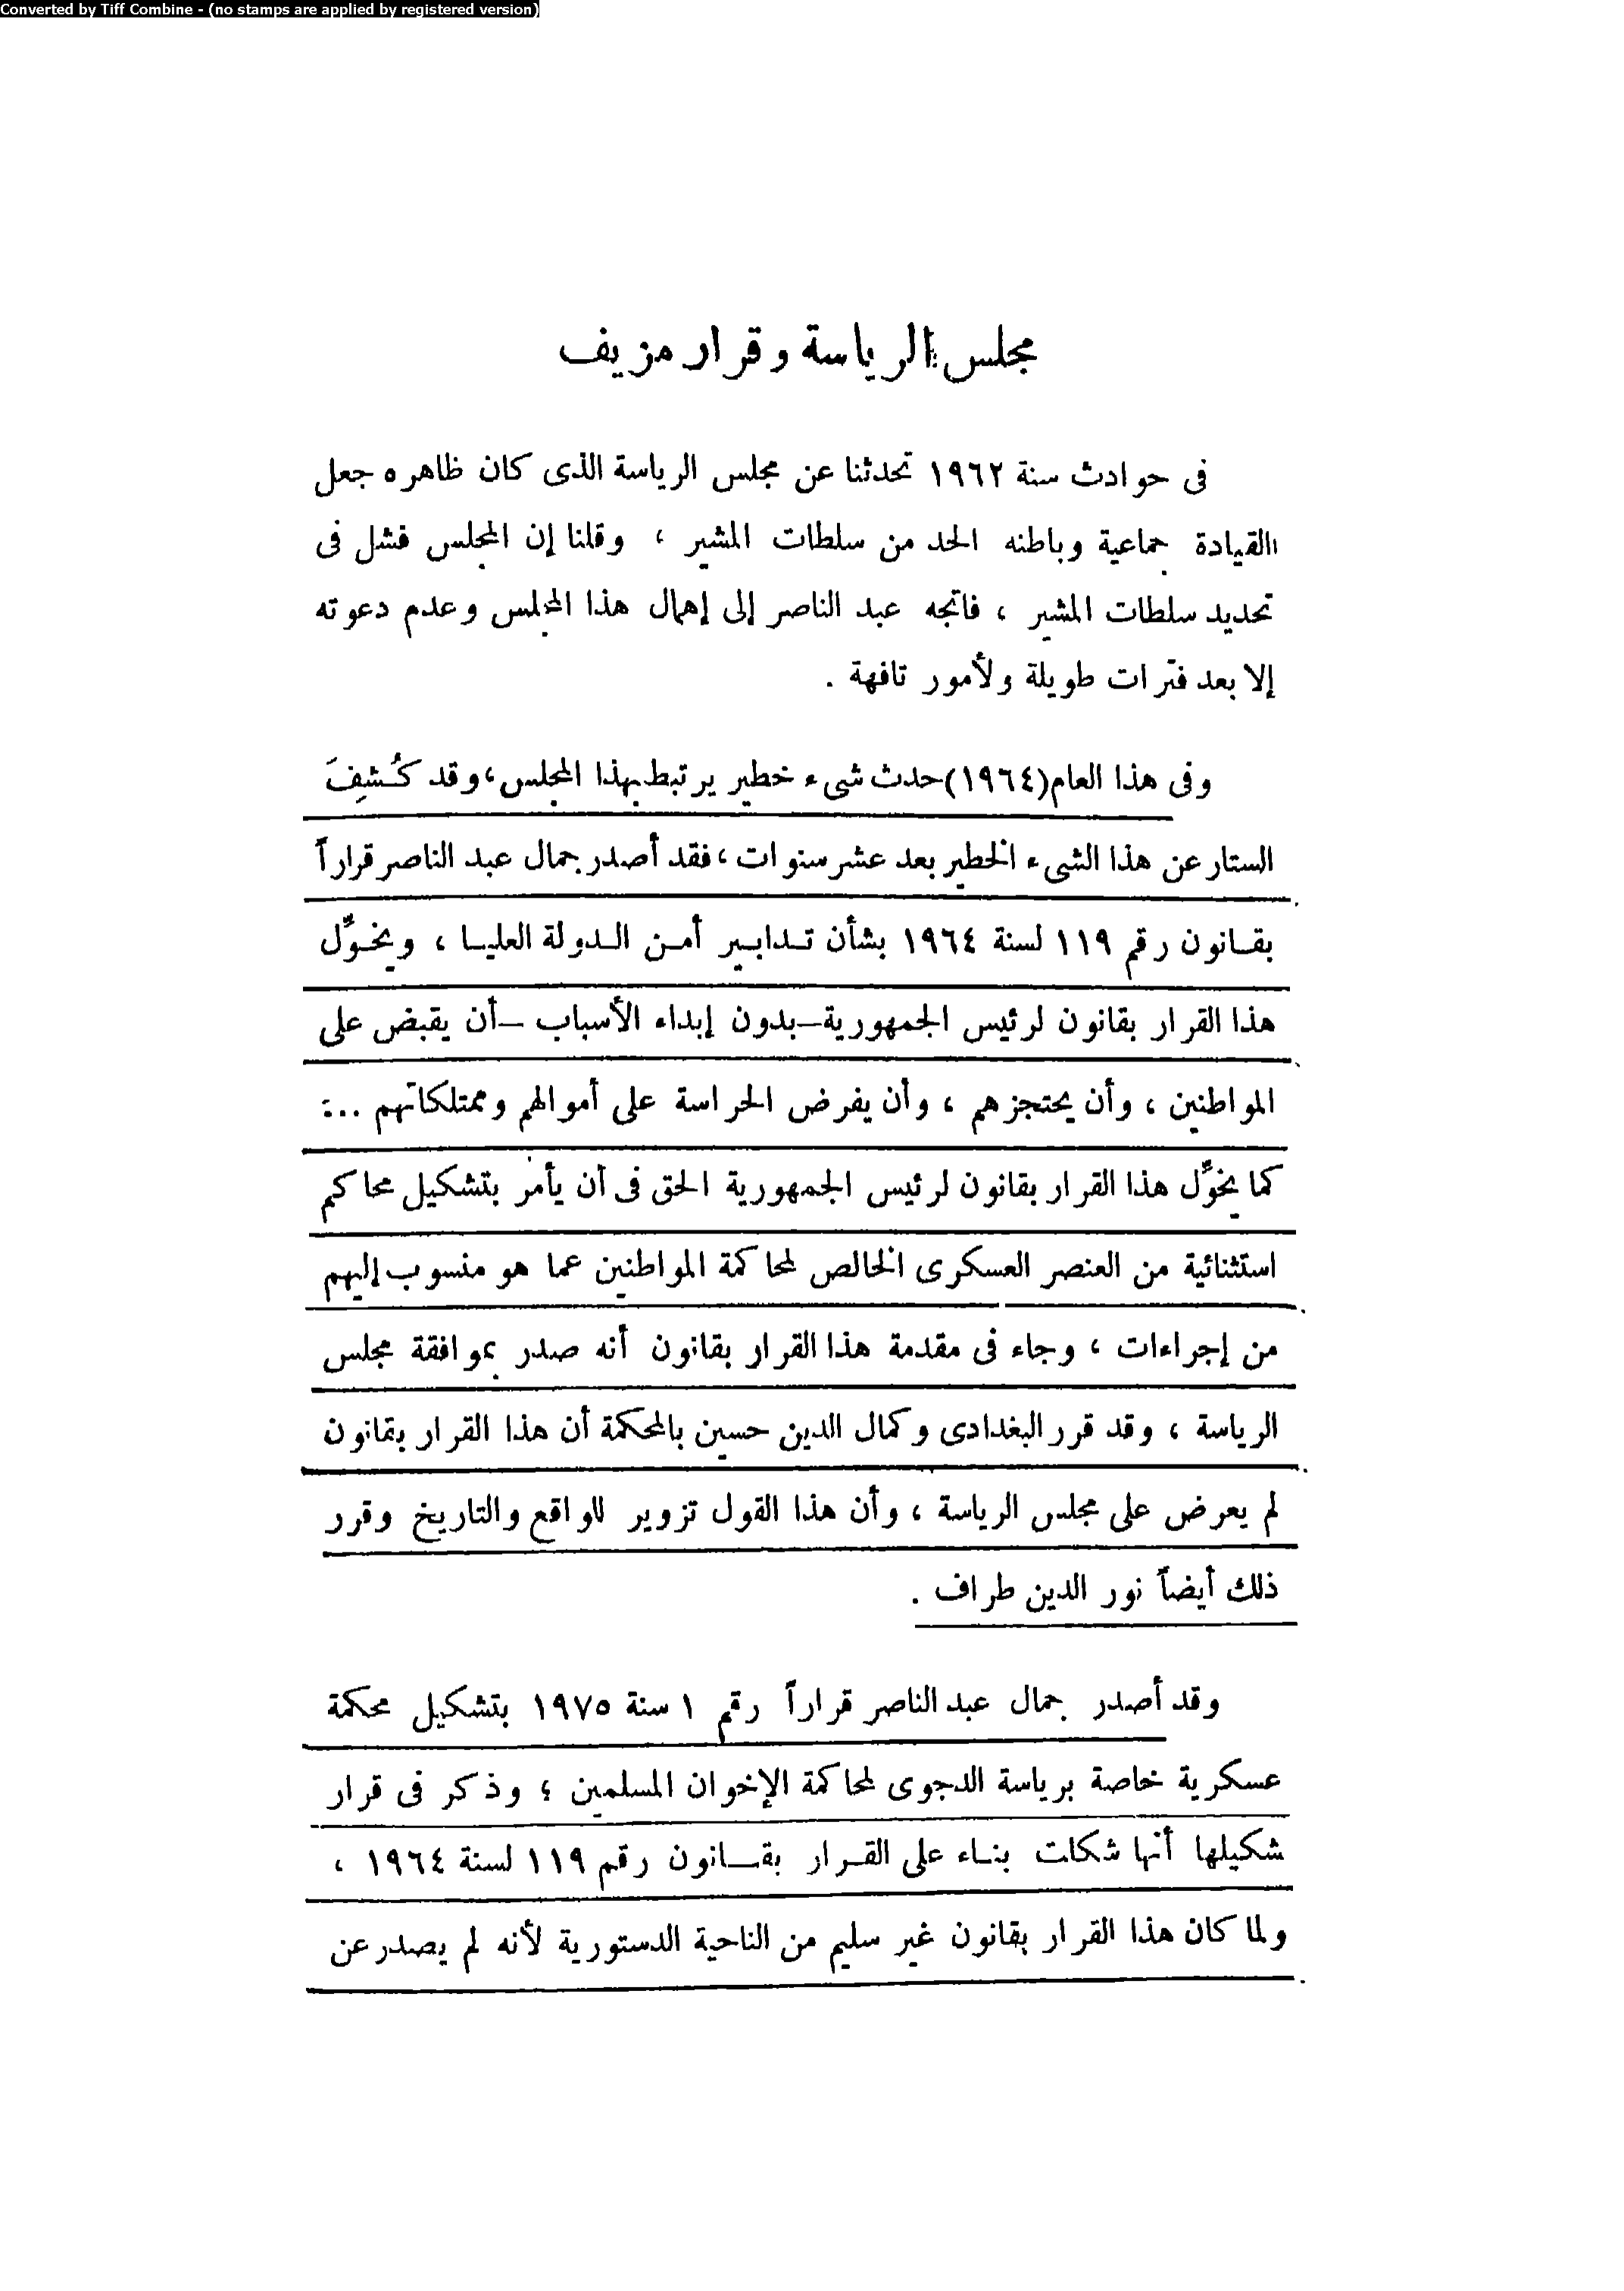 Converted by Tiff Combine - (no stamps are applied by registered version)
مجلس الرياسة وقرار مزيف
فى حوادث سنة ١٩٦٢ تحدثنا عن مجلس الرياسة الذى كان ظاهره جعل
القيادة جماعية وباطنه الحد من سلطات المشير ، وقلنا إن المجلس فشل فى
تحديد سلطات المشير ، فاتجه عبد الناصر إلى إهمال هذا المجلس وعدم دعوته
إلا بعد فترات طويلة ولأمور تافهة .
وفى هذا العام (١٩٦٤) حدث شىء خطير يرتبط بهذا المجلس ، وقد كُشِفَ
الستار عن هذا الشىء الخطير بعد عشر سنوات ، فقد أصدر جمال عبد الناصر قراراً
بقـانون رقم ١١٩ لسنة ١٩٦٤ بشأن تـدابـير أمـن الـدولة العليـا ، ويخـوِّل
هذا القرار بقانون لرئيس الجمهورية – بدون إبداء الأسباب – أن يقبض على
المواطنين ، وأن يحتجزهم ، وأن يفرض الحراسة على أموالهم وممتلكاتهم ...:
كما يخوِّل هذا القرار بقانون لرئيس الجمهورية الحق فى أن يأمر بتشكيل محاكم
استثنائية من العنصر العسكرى الخالص لمحاكمة المواطنين عما هو منسوب إليهم
من إجراءات ، وجاء فى مقدمة هذا القرار بقانون أنه صدر بموافقة مجلس
الرياسة ، وقد قرر البغدادى وكمال الدين حسين بالمحكمة أن هذا القرار بقانون
لم يعرض على مجلس الرياسة ، وأن هذا القول تزوير للواقع والتاريخ وقرر
ذلك أيضاً نور الدين طراف .
وقد أصدر جمال عبد الناصر قراراً رقم ١ سنة ١٩٧٥ بتشكيل محكمة
عسكرية خاصة برياسة الدجوى لمحاكمة الإخوان المسلمين ؛ وذكر فى قرار
شكيلها أنها شكلت بنـاء على القـرار بقــانون رقم ١١٩ لسنة ١٩٦٤ ،
ولما كان هذا القرار بقانون غير سليم من الناحية الدستورية لأنه لم يصدر عن